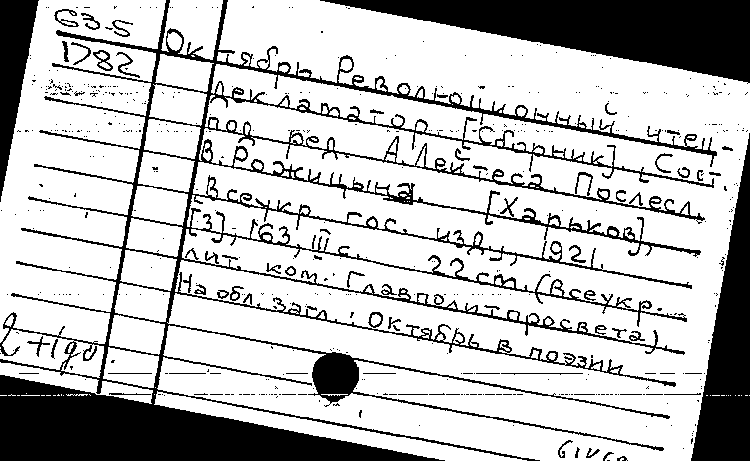 G3-5
1782
Октябрь. Революционный чтец-
декламатор [Сборник]. Сост.
под ред. А. Лейтеса. Послесл.
В. Рожицына. [Харьков],
Всеукр. гос. изд., 1921.
[3], 163, III с. 22 cm. (Всеукр.
лит. ком. Главполитпросвета).
На обл. загл.: Октябрь в поэзии
2